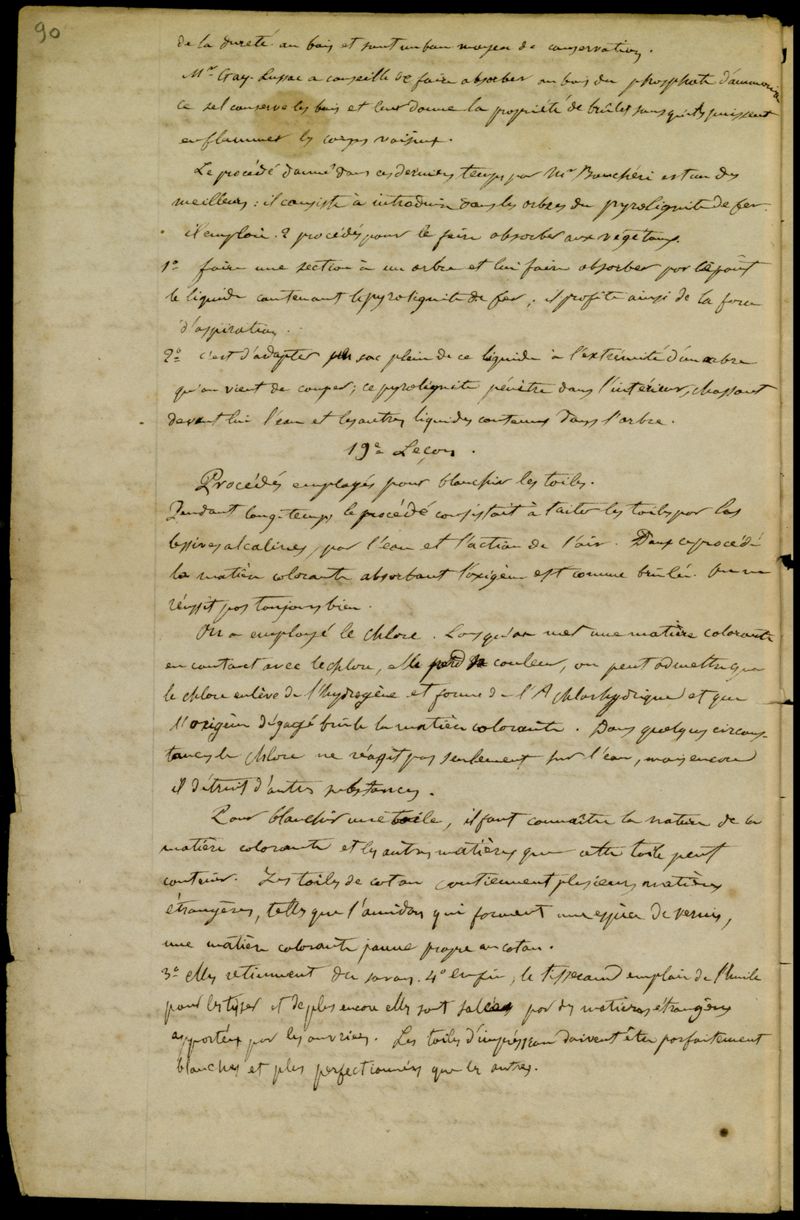 90
de la dureté au bois et sont un bon moyen de conservation.
Mr Gay-Lussac a conseillé de faire absorber au bois du phosphate d'ammoniaque
ce sel conserve les bois et leur donne la propriété de brûler sans qu'ils puissent
enflammer les corps voisins.
Le procédé donné dans ces derniers temps par Mr Bouchéri est un des
meilleurs : il consiste à introduire dans les arbres du pyrolignite de fer.
il emploie 2 procédés pour le faire absorber aux végétaux.
1º faire une section à un arbre et lui faire absorber par
le liquide contenant le pyrolignite de fer ; il profite ainsi de la force
d'aspiration.
2º c'est d'adapter un sac plein de ce liquide à l'extrémité d'un arbre
qu'on vient de couper ; ce pyrolignite pénètre dans l'intérieur, chassant
devant lui l'eau et les autres liquides contenus dans l'arbre.
19e Leçon.
Procédés employés pour blanchir les toiles.
Pendant longtemps le procédé consistait à traiter les toiles par les
lessives alcalines, par l'eau et l'action de l'air. Dans ce procédé
la matière colorante absorbant l'oxigène est comme brûlée. On ne
réussit pas toujours bien.
On a employé le chlore. Lorsqu'on met une matière colorante
en contact avec le chlore, elle perd sa couleur, on peut admettre que
le chlore enlève de l'hydrogène et forme de l'A chlorhydrique et que
l'oxigène dégagé brûle la matière colorante. Dans quelques circons-
tances le chlore ne réagit pas seulement sur l'eau, mais encore
il détruit d'autres substances.
Pour blanchir une toile, il faut connaître la nature de la
matière colorante et les autres matières que cette toile peut
contenir. Les toiles de coton contiennent plusieurs matières
étrangères, telles que l'amidon qui forment une espèce de vernis,
une matière colorante jaune propre au coton.
3º elles retiennent du savon. 4º enfin, le tisserand emploie de l'huile
pour les tisser et de plus encore elles sont salées par des matières étrangères
apportées par les ouvriers. Les toiles d'impression doivent être parfaitement
blanches et plus perfectionnées que les autres.